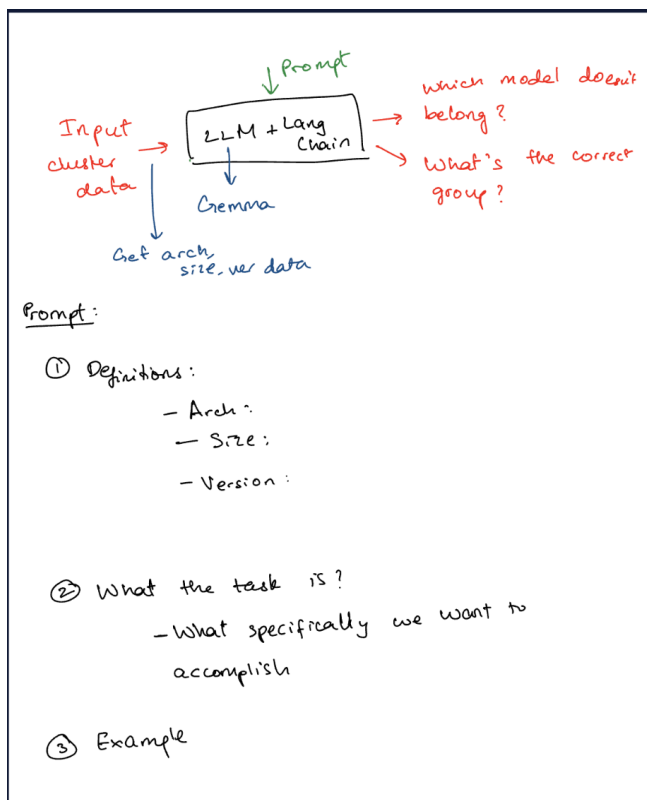 Prompt
Input
cluster
data
LLM + Lang
Chain
which model doesn't
belong?
What's the correct
group?
Gemma
Get arch,
size, ver data
Prompt:
① Definitions:
- Arch:
- Size:
- Version:
② What the task is?
- What specifically we want to
accomplish
③ Example